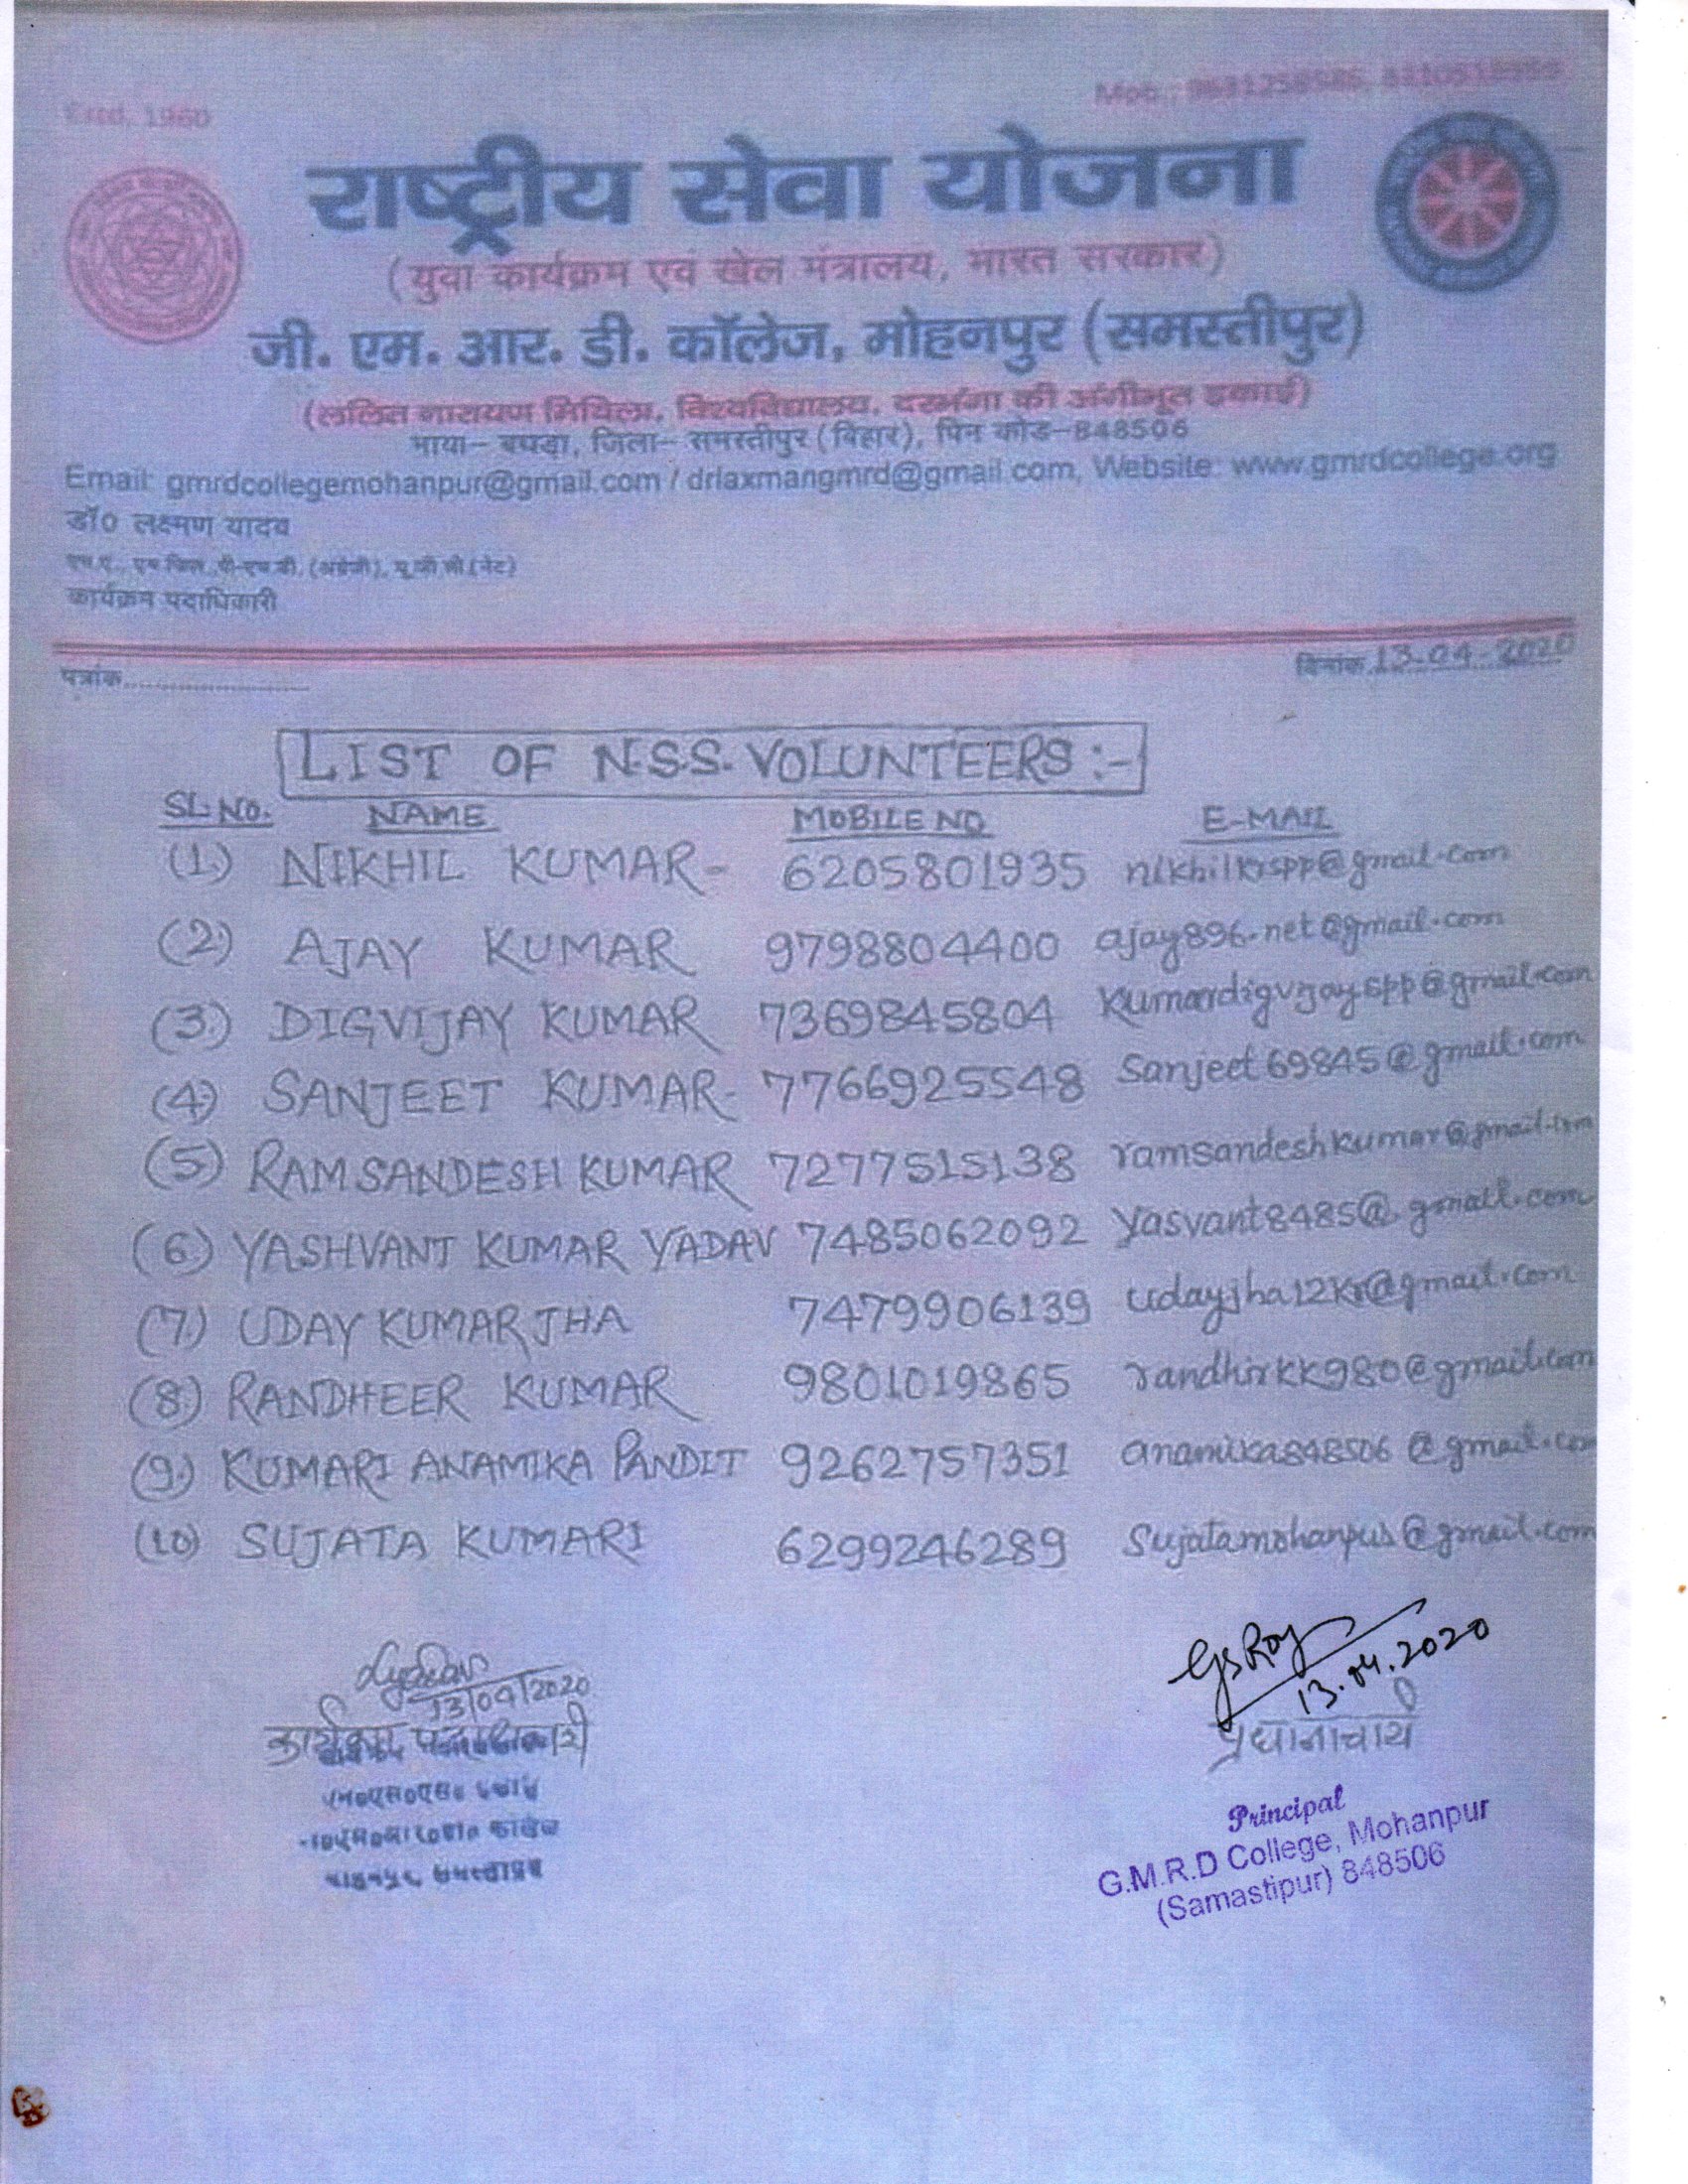 Estd. 1960
Mob.:
राष्ट्रीय सेवा योजना
(युवा कार्यक्रम एवं खेल मंत्रालय, भारत सरकार)
जी. एम. आर. डी. कॉलेज, मोहनपुर (समस्तीपुर)
(ललित नारायण मिथिला, विश्वविद्यालय, दरभंगा की अंगीभूत इकाई)
भाया- बघड़ा, जिला- समस्तीपुर (बिहार), पिन कोड-848506
Email: gmrdcollegemohanpur@gmail.com / drlaxmangmrd@gmail.com, Website: www.gmrdcollege.org
डॉ0 लक्ष्मण यादव
एम.ए., एम.फिल., पी-एच.डी. (अंग्रेजी), यू.जी.सी (नेट)
कार्यक्रम पदाधिकारी
पत्रांक.......................... दिनांक 13-04-2020
LIST OF N.S.S. VOLUNTEERS :-
SL. NO. NAME MOBILE NO E-MAIL
(1.) NIKHIL KUMAR- 6205801935 nikhilkrspp@gmail.com
(2.) AJAY KUMAR 9798804400 ajay896.net@gmail.com
(3.) DIGVIJAY KUMAR 7369845804 kumardigvijayspp@gmail.com
(4.) SANJEET KUMAR- 7766925548 Sanjeet69845@gmail.com
(5.) RAMSANDESH KUMAR 7277515138 ramsandeshkumar@gmail.com
(6.) YASHVANT KUMAR YADAV 7485062092 Yasvant8485@gmail.com
(7.) UDAY KUMAR JHA 7479906139 udayjha12kr@gmail.com
(8.) RANDHEER KUMAR 9801019865 randhirkk980@gmail.com
(9.) KUMARI ANAMIKA PANDIT 9262757351 anamika848506@gmail.com
(10) SUJATA KUMARI 6299246289 Sujatamohanpur@gmail.com
13/04/2020
कार्यक्रम पदाधिकारी
GS Roy
13.04.2020
प्रधानाचार्य
Principal
G.M.R.D College, Mohanpur
(Samastipur) 848506